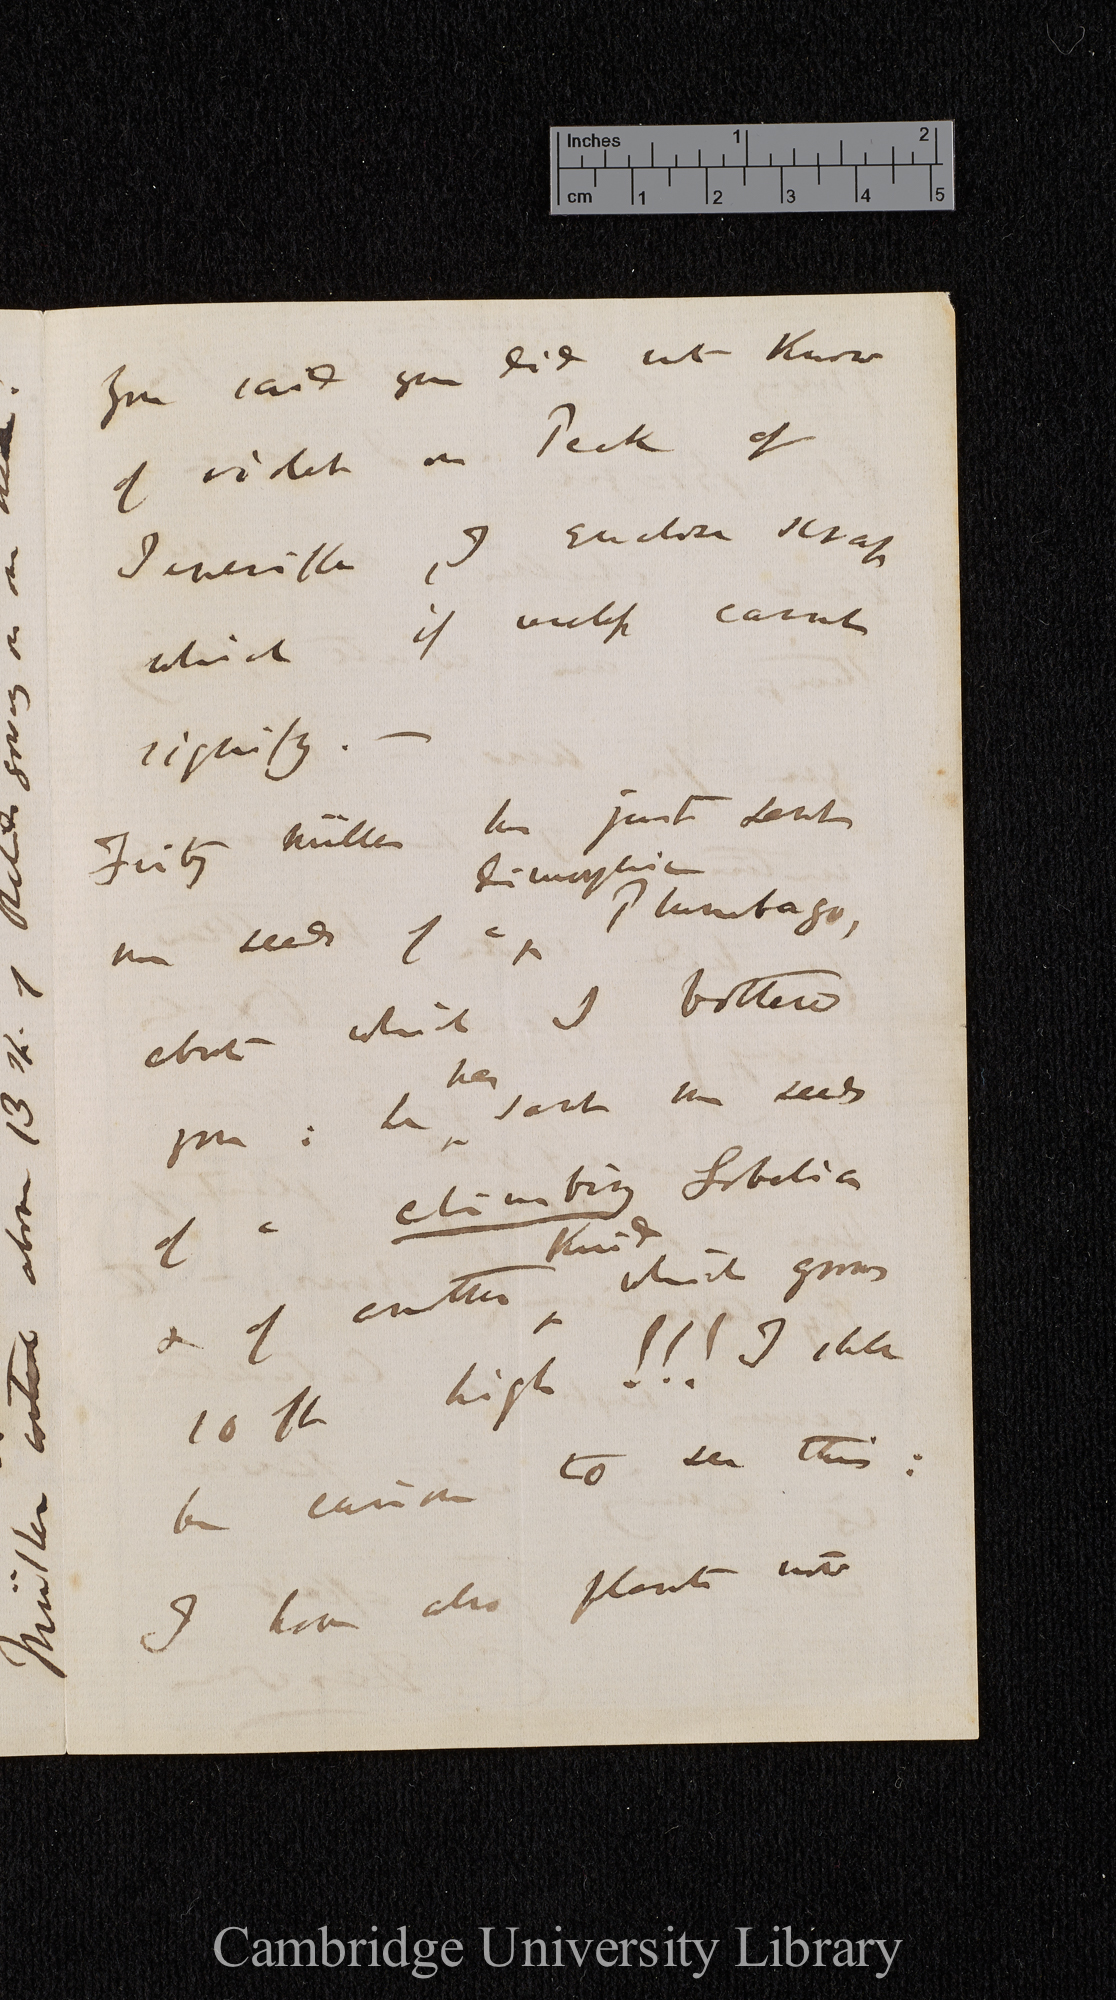 Inches 1 2
cm 1 2 3 4 5
You said you did not know
of violet on Peak of
Teneriffe, I enclose scrap
which if useless cannot
signify. —
Fritz Müller has just sent
me seeds of a ^dimorphic Plumbago,
about which I bothered
you: he ^has sent me seeds
of a climbing Lobelia
& of another ^kind which grows
10 ft high !!! I shall
be curious to see this:
I have also plants now
Müller above 13 of growing on
Cambridge University Library